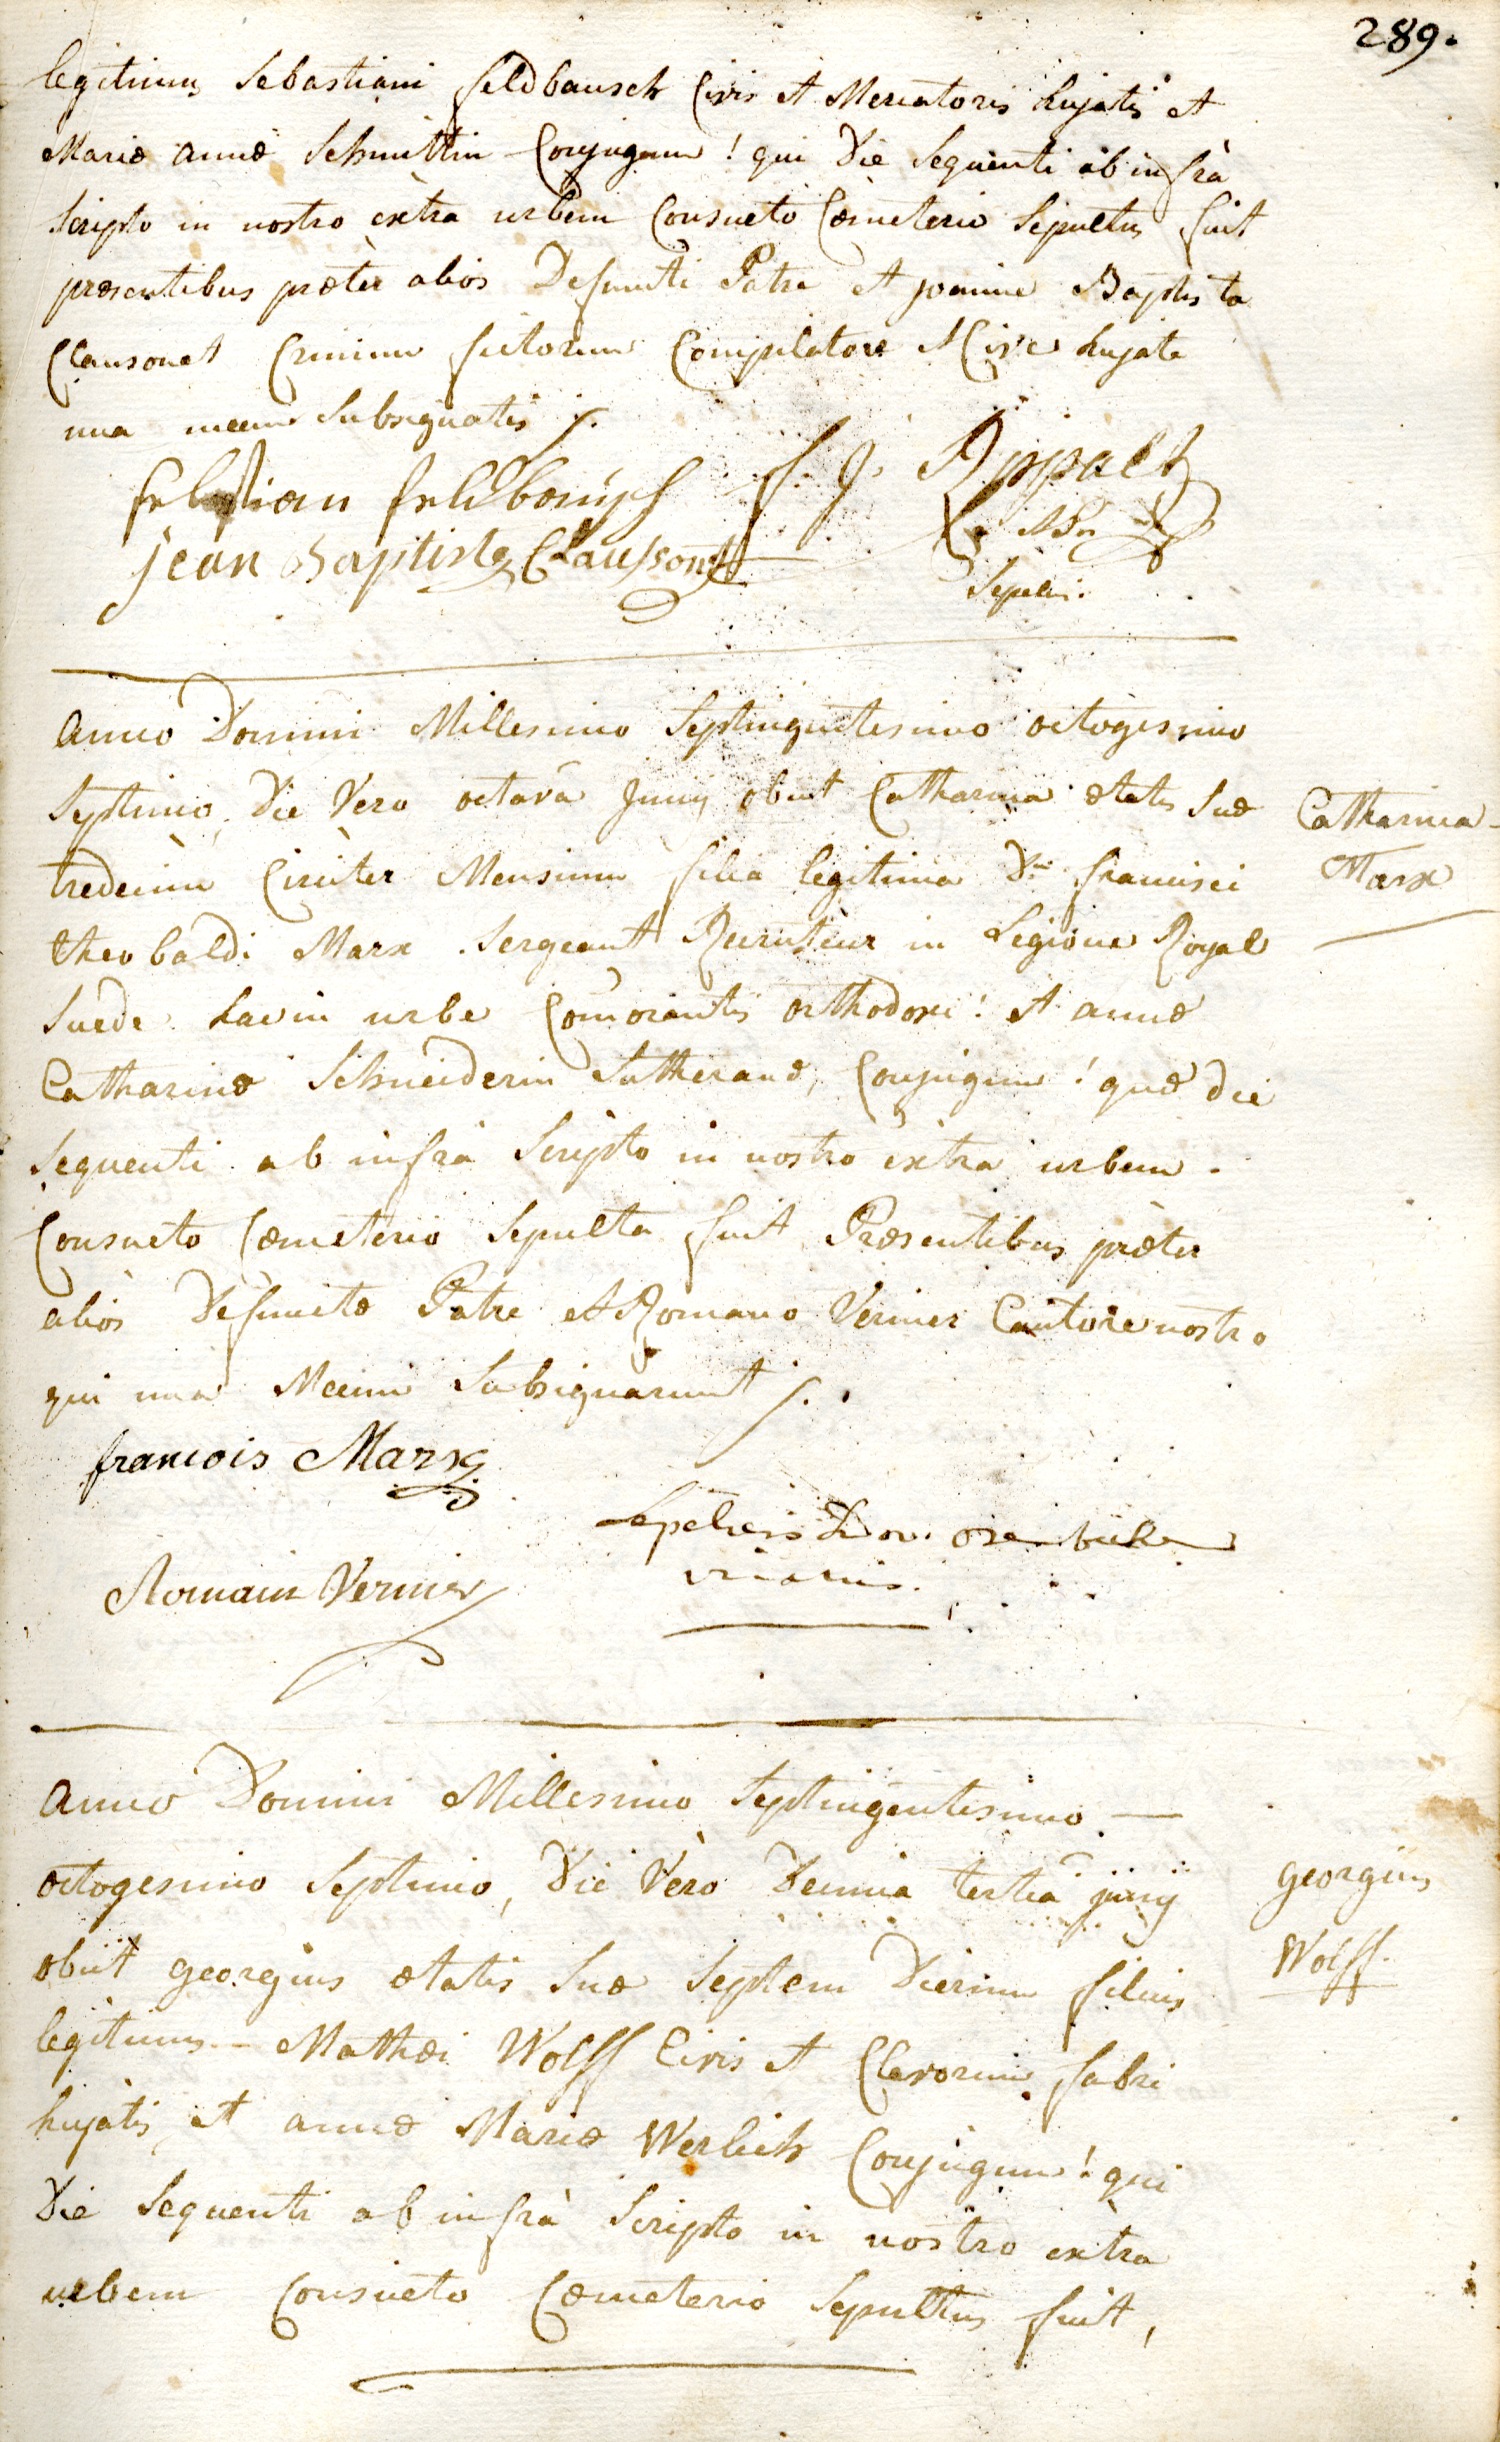 289.
legitimus Sebastiani Feldbausch Civis et Mercatoris hujatis et
Mariæ annæ Schmittin Conjugum! qui Die Sequenti ab infrà
Scripto in nostro extra urbem Consueto Cœmeterio Sepultus fuit
præsentibus præter alios Defuncti Patre et joanne Baptista
Clausonet Crinium fictorum Compilatore et Cive hujate
una mecum Subsignatis ;.
sebastian feldbausch F. J. Rippalt
jean Baptiste Claussonet
Sepelivi.
Anno Domini Millesimo Septinguetesimo octogesimo
Septimo, Die Vero octavâ Junÿ obiit Catharina ætatis Suæ
tredecim Circiter Mensium filia legitima Dni francisci
theobaldi Marx Sergeant Recruteur in Legione Royal
Suede hac in urbe Com̄orantis orthodoxi! et annæ
Catharinæ Schneiderin Lutheranæ, Conjugum! quæ die
Sequenti ab infrà Scripto in nostro extra urbem
Consueto Cœmeterio Sepulta fuit Præsentibus præter
alios Defunctæ Patre et Romano Vernier Cantore nostro
qui unà Mecum Subsignarunt ;.
Catharina
Marx
francois Marx
Sepelivi
Romain Vernier
vicarius.
Anno Domini Millesimo Septingentesimo
octogesimo Septimo, Die Vèro Decima tertiâ junÿ
obiit georgius ætatis Suæ Septem Dierum filius
legitimus Mathæi Wolff Civis et Clavorum fabri
hujatis, et annæ Mariæ Werlich Conjugum! qui
Die Sequenti ab infrà Scripto in nostro extra
urbem Consueto Cœmeterio Sepultus fuit,
georgius
Wolff.